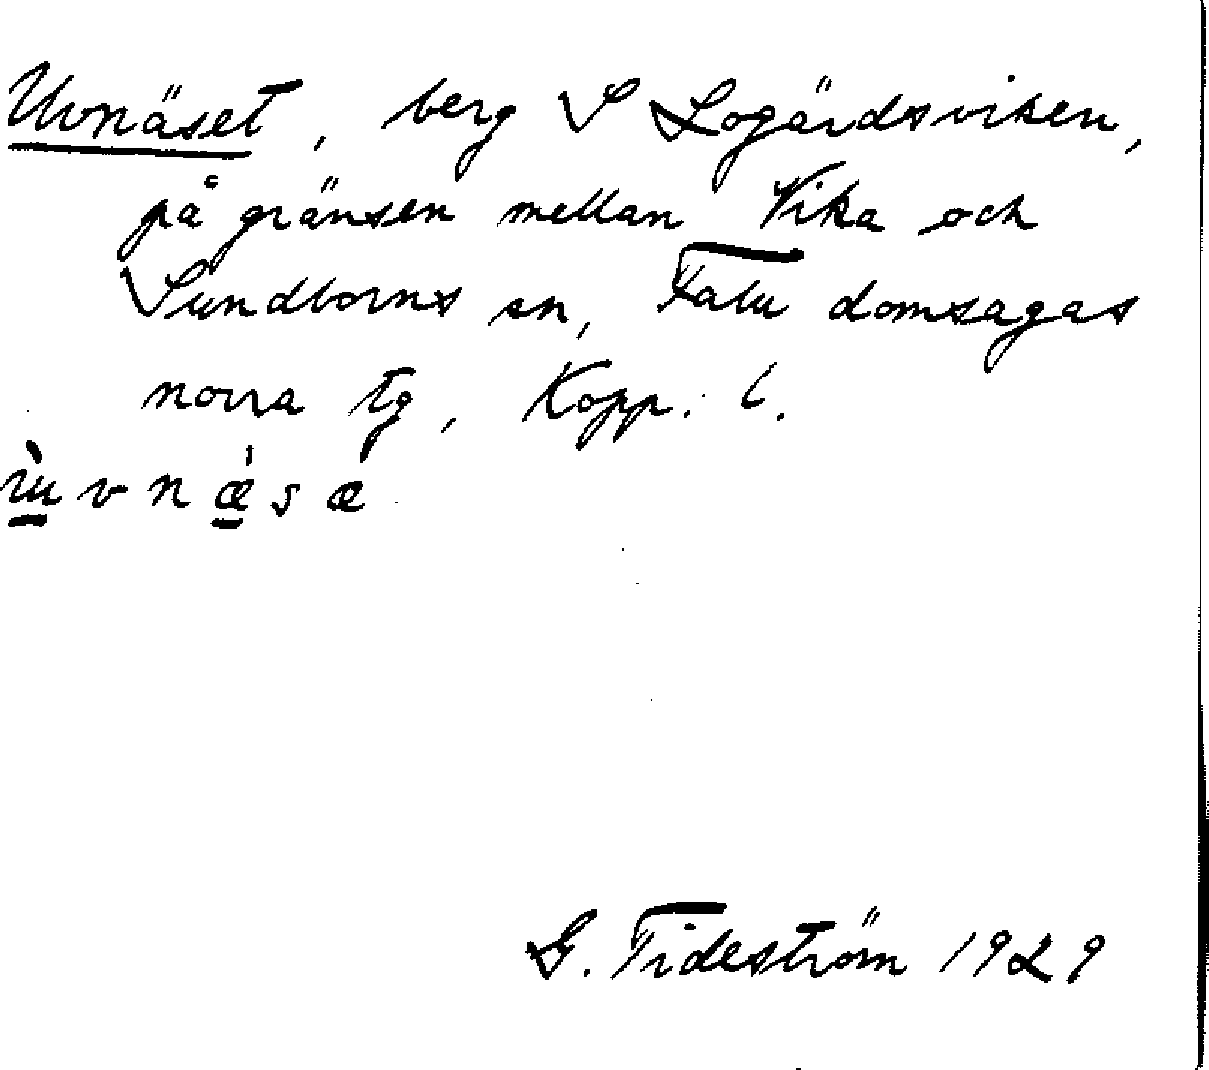 Uvnäset, berg S Logärdsviken,
på gränsen mellan Vika och
Sundborns sn, Falu domsagas
norra tg, Kopp. l.
G. Tideström 1929